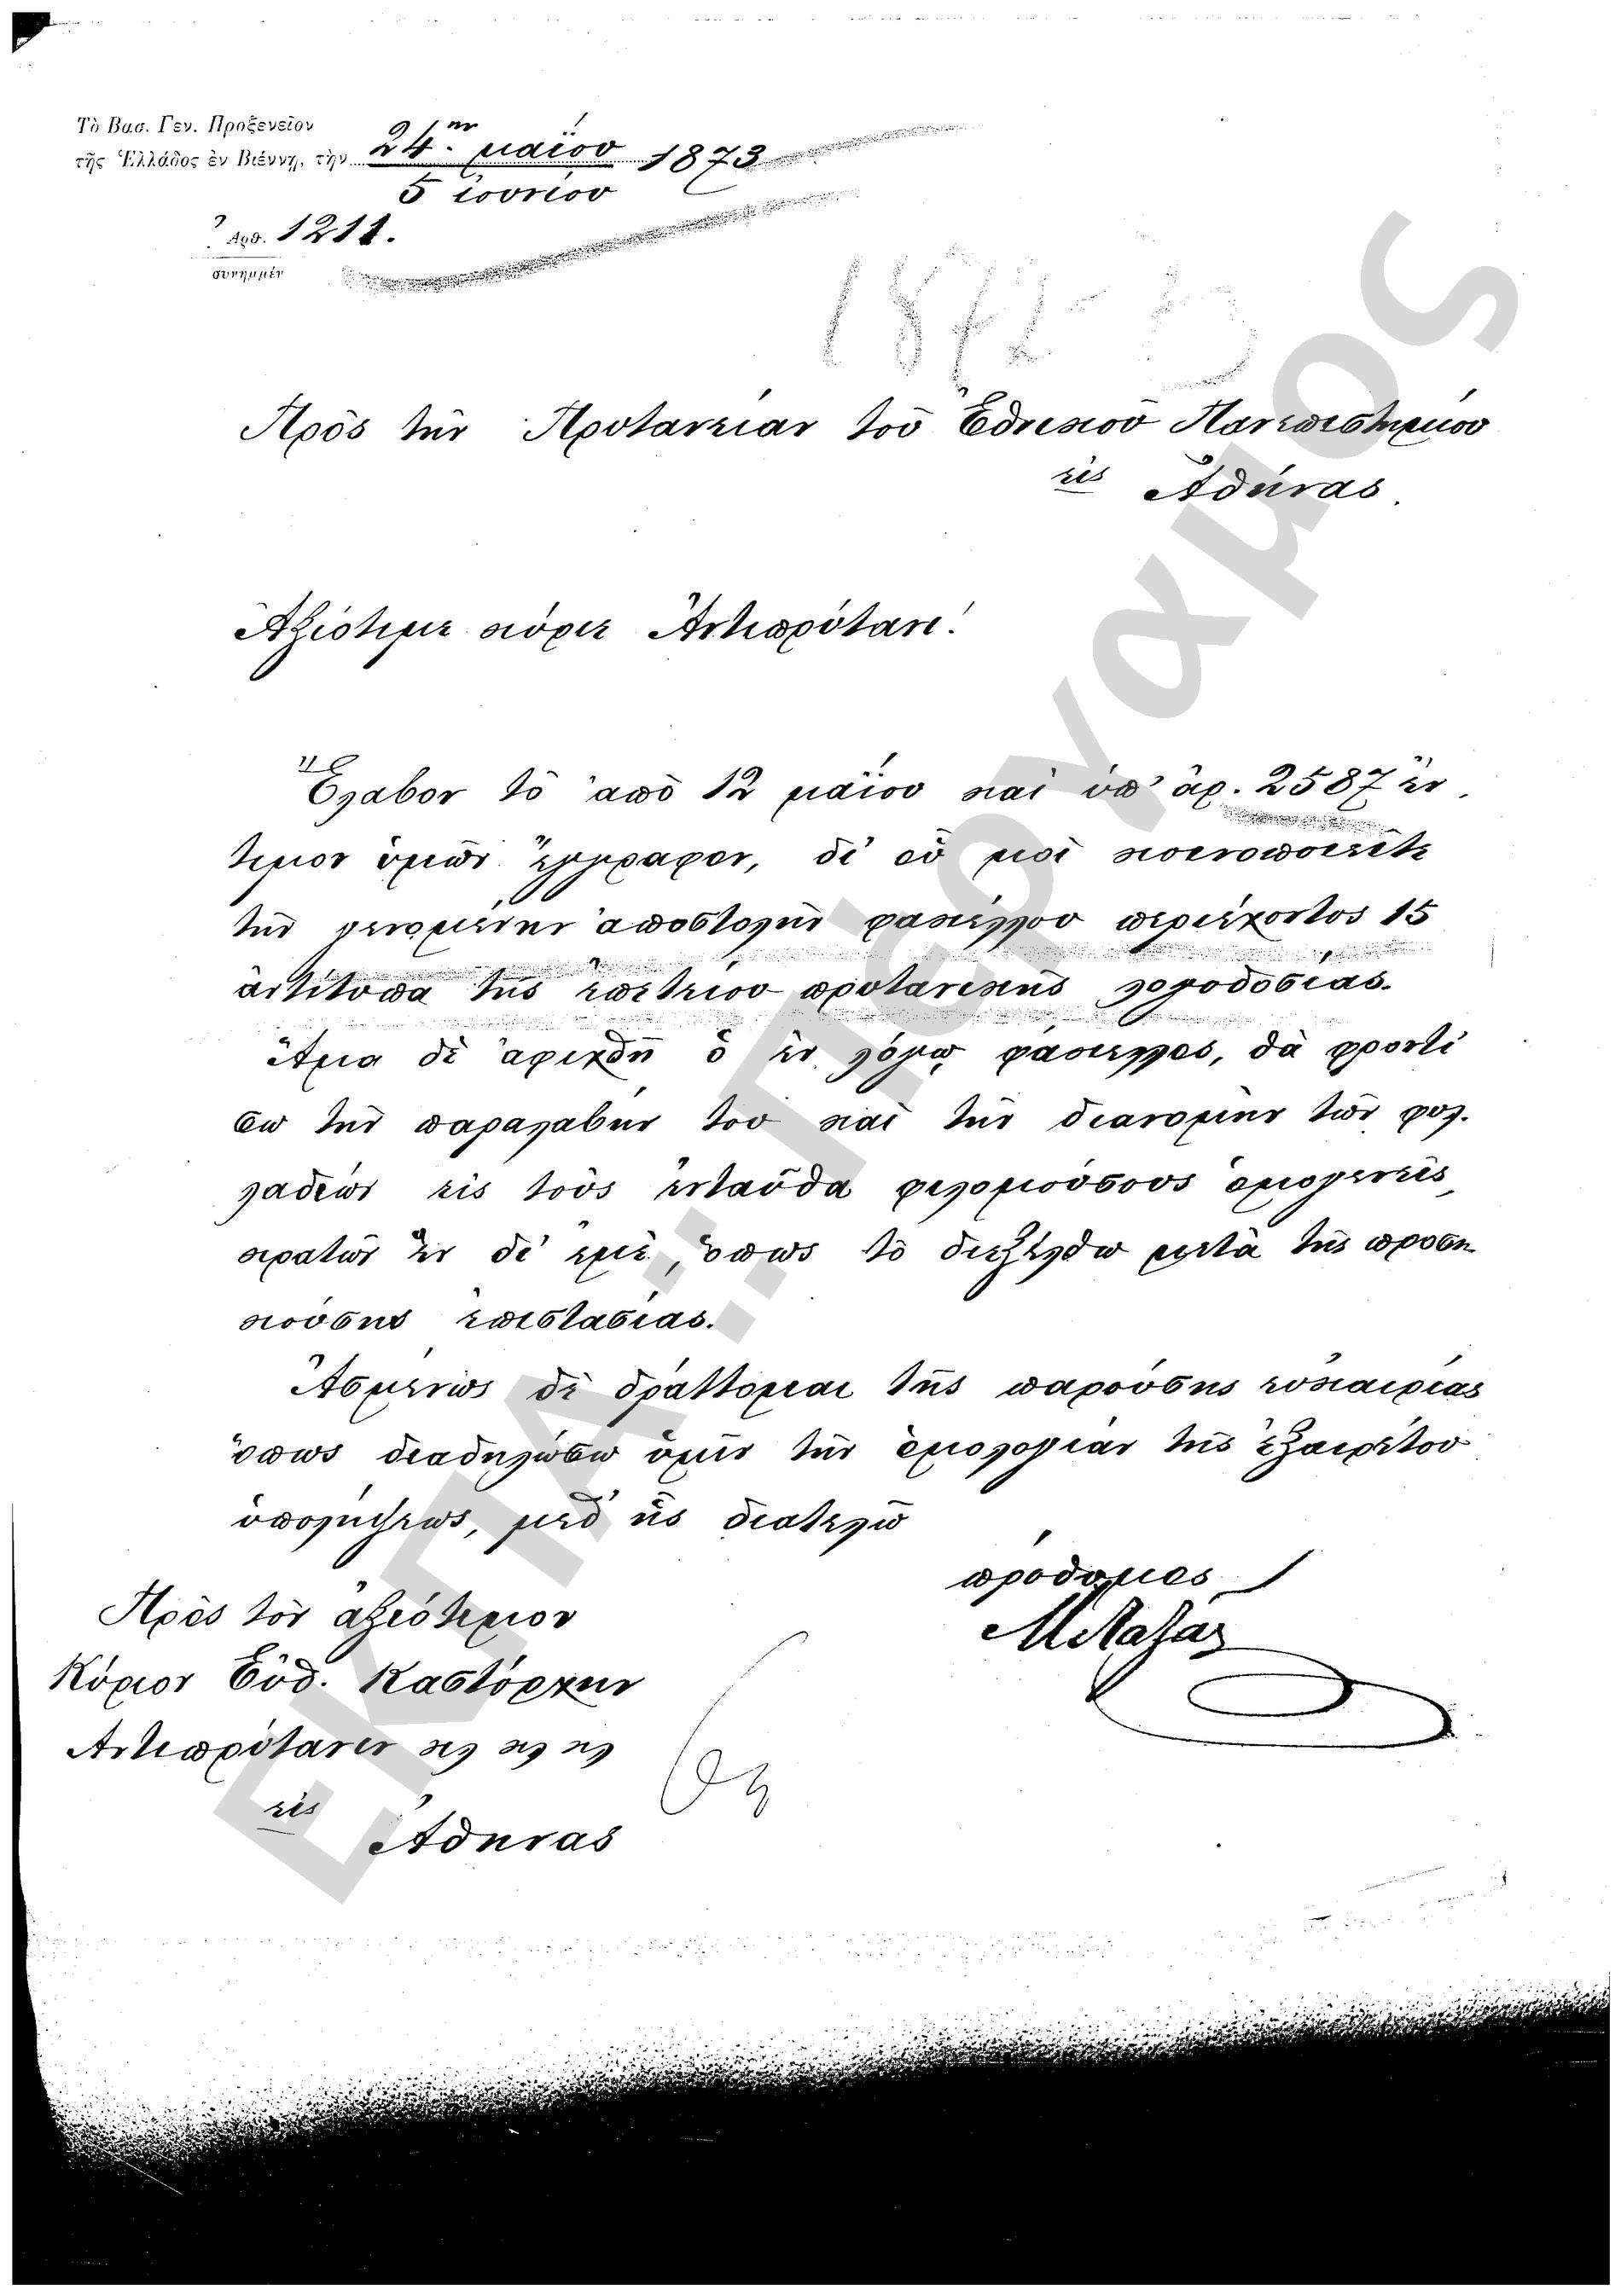 Τὸ Βασ. Γεν. Προξενεῖον
τῆς Ἑλλάδος ἐν Βιέννῃ, τὴν 24ην μαΐου 1873
5 ἰουνίου
Ἀρθ. 1211.
συνημμέν
1872-3
Πρὸς τὴν Πρυτανείαν τοῦ Ἐθνικοῦ Πανεπιστημίου
εἰς Ἀθήνας.
Ἀξιότιμε κύριε Ἀντιπρύτανι!
Ἔλαβον τὸ ἀπὸ 12 μαΐου καὶ ὑπ' ἀρ. 2587 ἔν
τιμον ὑμῶν ἔγγραφον, δι' οὗ μοὶ κοινοποιεῖτε
τὴν γενομένην ἀποστολὴν φακέλλου περιέχοντος 15
ἀντίτυπα τῆς ἐπετείου πρυτανικῆς λογοδοσίας.
Ἅμα δὲ ἀφιχθῇ ὁ ἐν λόγῳ φάκελλος, θὰ φροντί
σω τὴν παραλαβήν του καὶ τὴν διανομὴν τῶν φυλ-
λαδίων εἰς τοὺς ἐνταῦθα φιλομούσους ὁμογενεῖς,
κρατῶν ἓν δι' ἐμὲ, ὅπως τὸ διεξέλθω μετὰ τῆς προση-
κούσης ἐπιστασίας.
Ἀσμένως δὲ δράττομαι τῆς παρούσης εὐκαιρίας
ὅπως διαδηλώσω ὑμῖν τὴν ὁμολογίαν τῆς ἐξαιρέτου
ὑπολήψεως, μεθ' ἧς διατελῶ
πρόθυμος
Πρὸς τὸν ἀξιότιμον
Κύριον Εὐθ. Καστόρχην
Ἀντιπρύτανιν κλ κλ κλ
εἰς Ἀθήνας
ΕΚΠΑ:: Πέργαμος